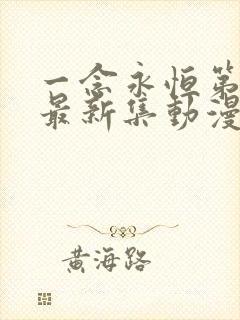 一念永恒第
最新集動漫
黄海路